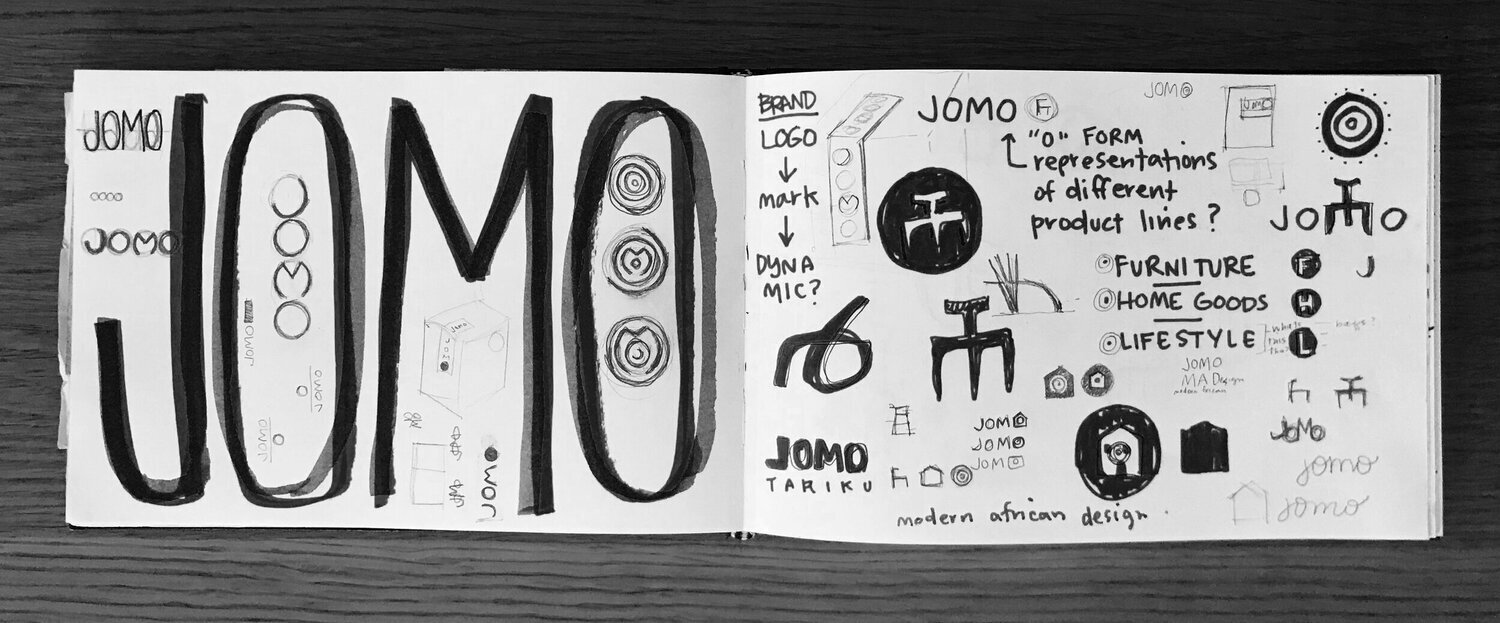 JOMO
JOMO
JOMO
JOMO
JOMO
JOMO
JOMO
JOMO
JOMO
BRAND
LOGO
mark
DYNA
MIC?
JOMO F
"O" FORM
representations
of different
product lines?
JOMO
JOMO
JOMO
FURNITURE F J
HOME GOODS H
LIFESTYLE L
what's
this
bags?
JOMO
MA Design
modern african
JOM
JOMO
JOM
JOMO
TARIKU
modern african design.
JOMO
jomo
jomo